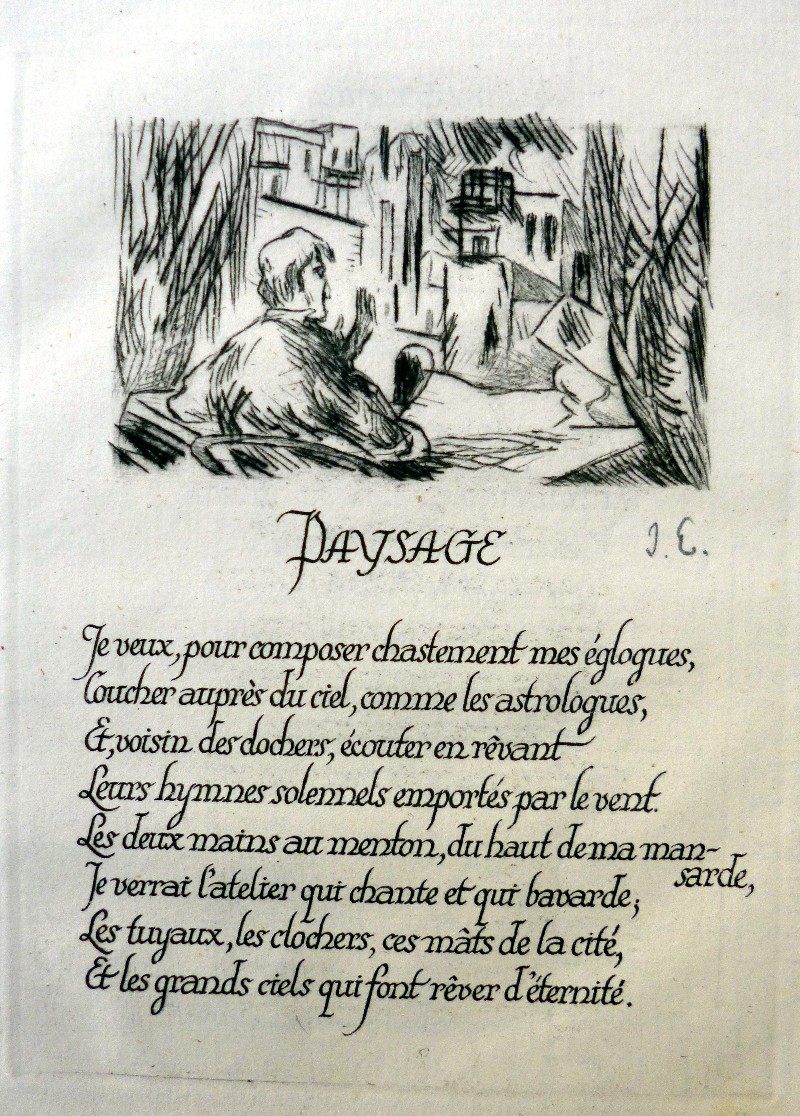 PAYSAGE
J. E.
Je veux, pour composer chastement mes églogues,
Coucher auprès du ciel, comme les astrologues,
Et, voisin des clochers, écouter en rêvant
Leurs hymnes solennels emportés par le vent.
Les deux mains au menton, du haut de ma man-
sarde,
Je verrai l'atelier qui chante et qui bavarde;
Les tuyaux, les clochers, ces mâts de la cité,
Et les grands ciels qui font rêver d'éternité.